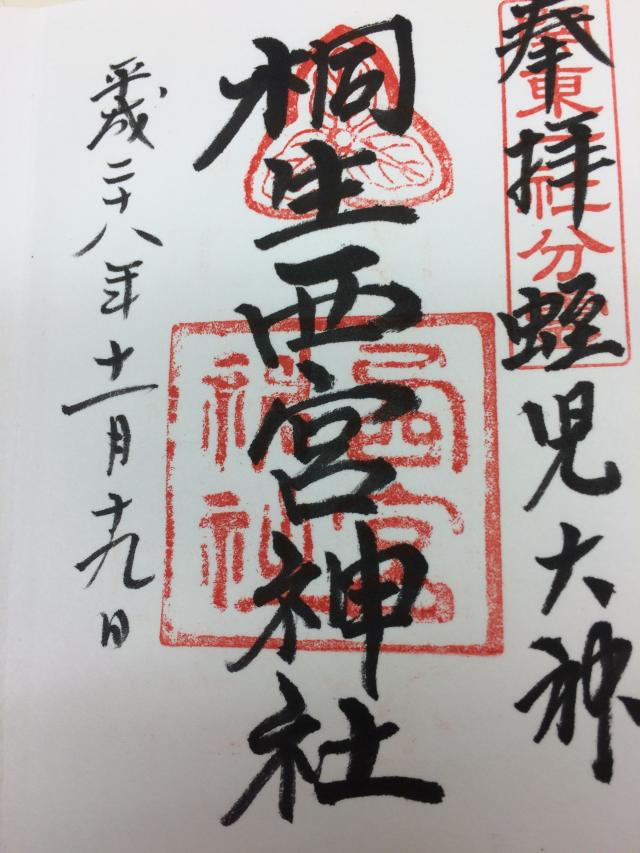 奉拝 蛭児大神
桐生西宮神社
平成二十八年十一月十九日
西宮
神社